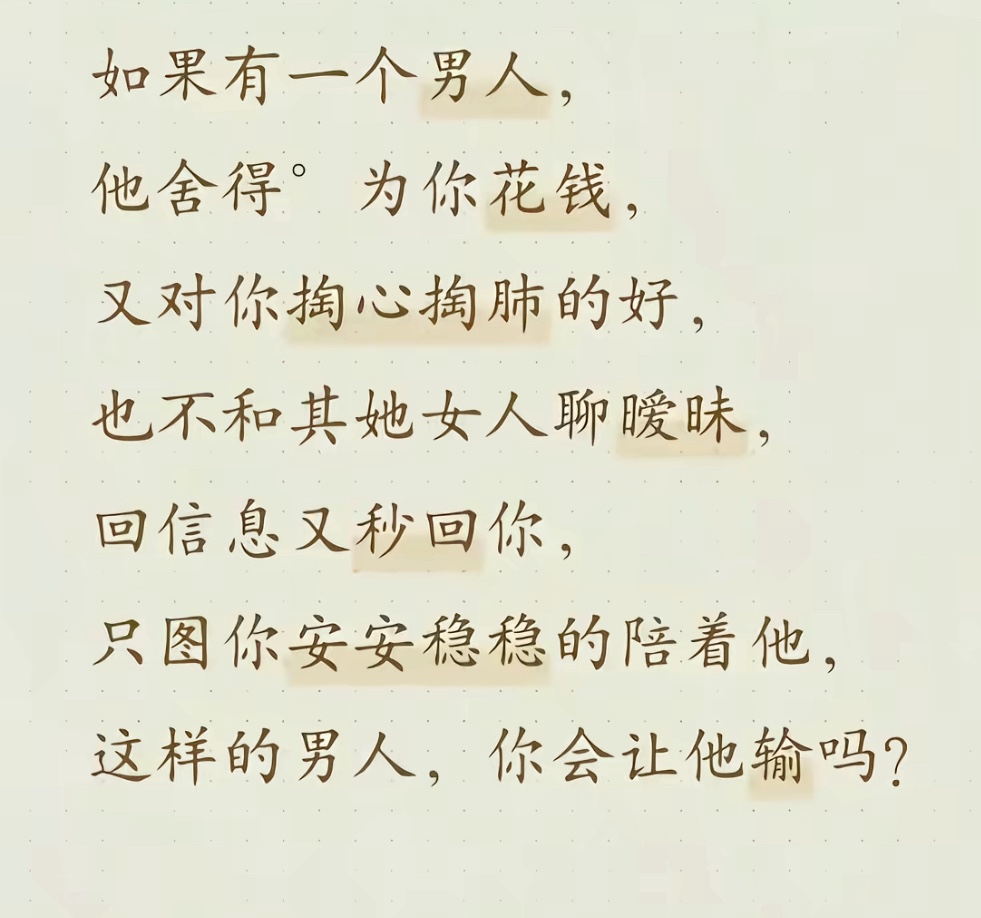 如果有一个男人，
他舍得° 为你花钱，
又对你掏心掏肺的好，
也不和其她女人聊暧昧，
回信息又秒回你，
只图你安安稳稳的陪着他，
这样的男人，你会让他输吗？